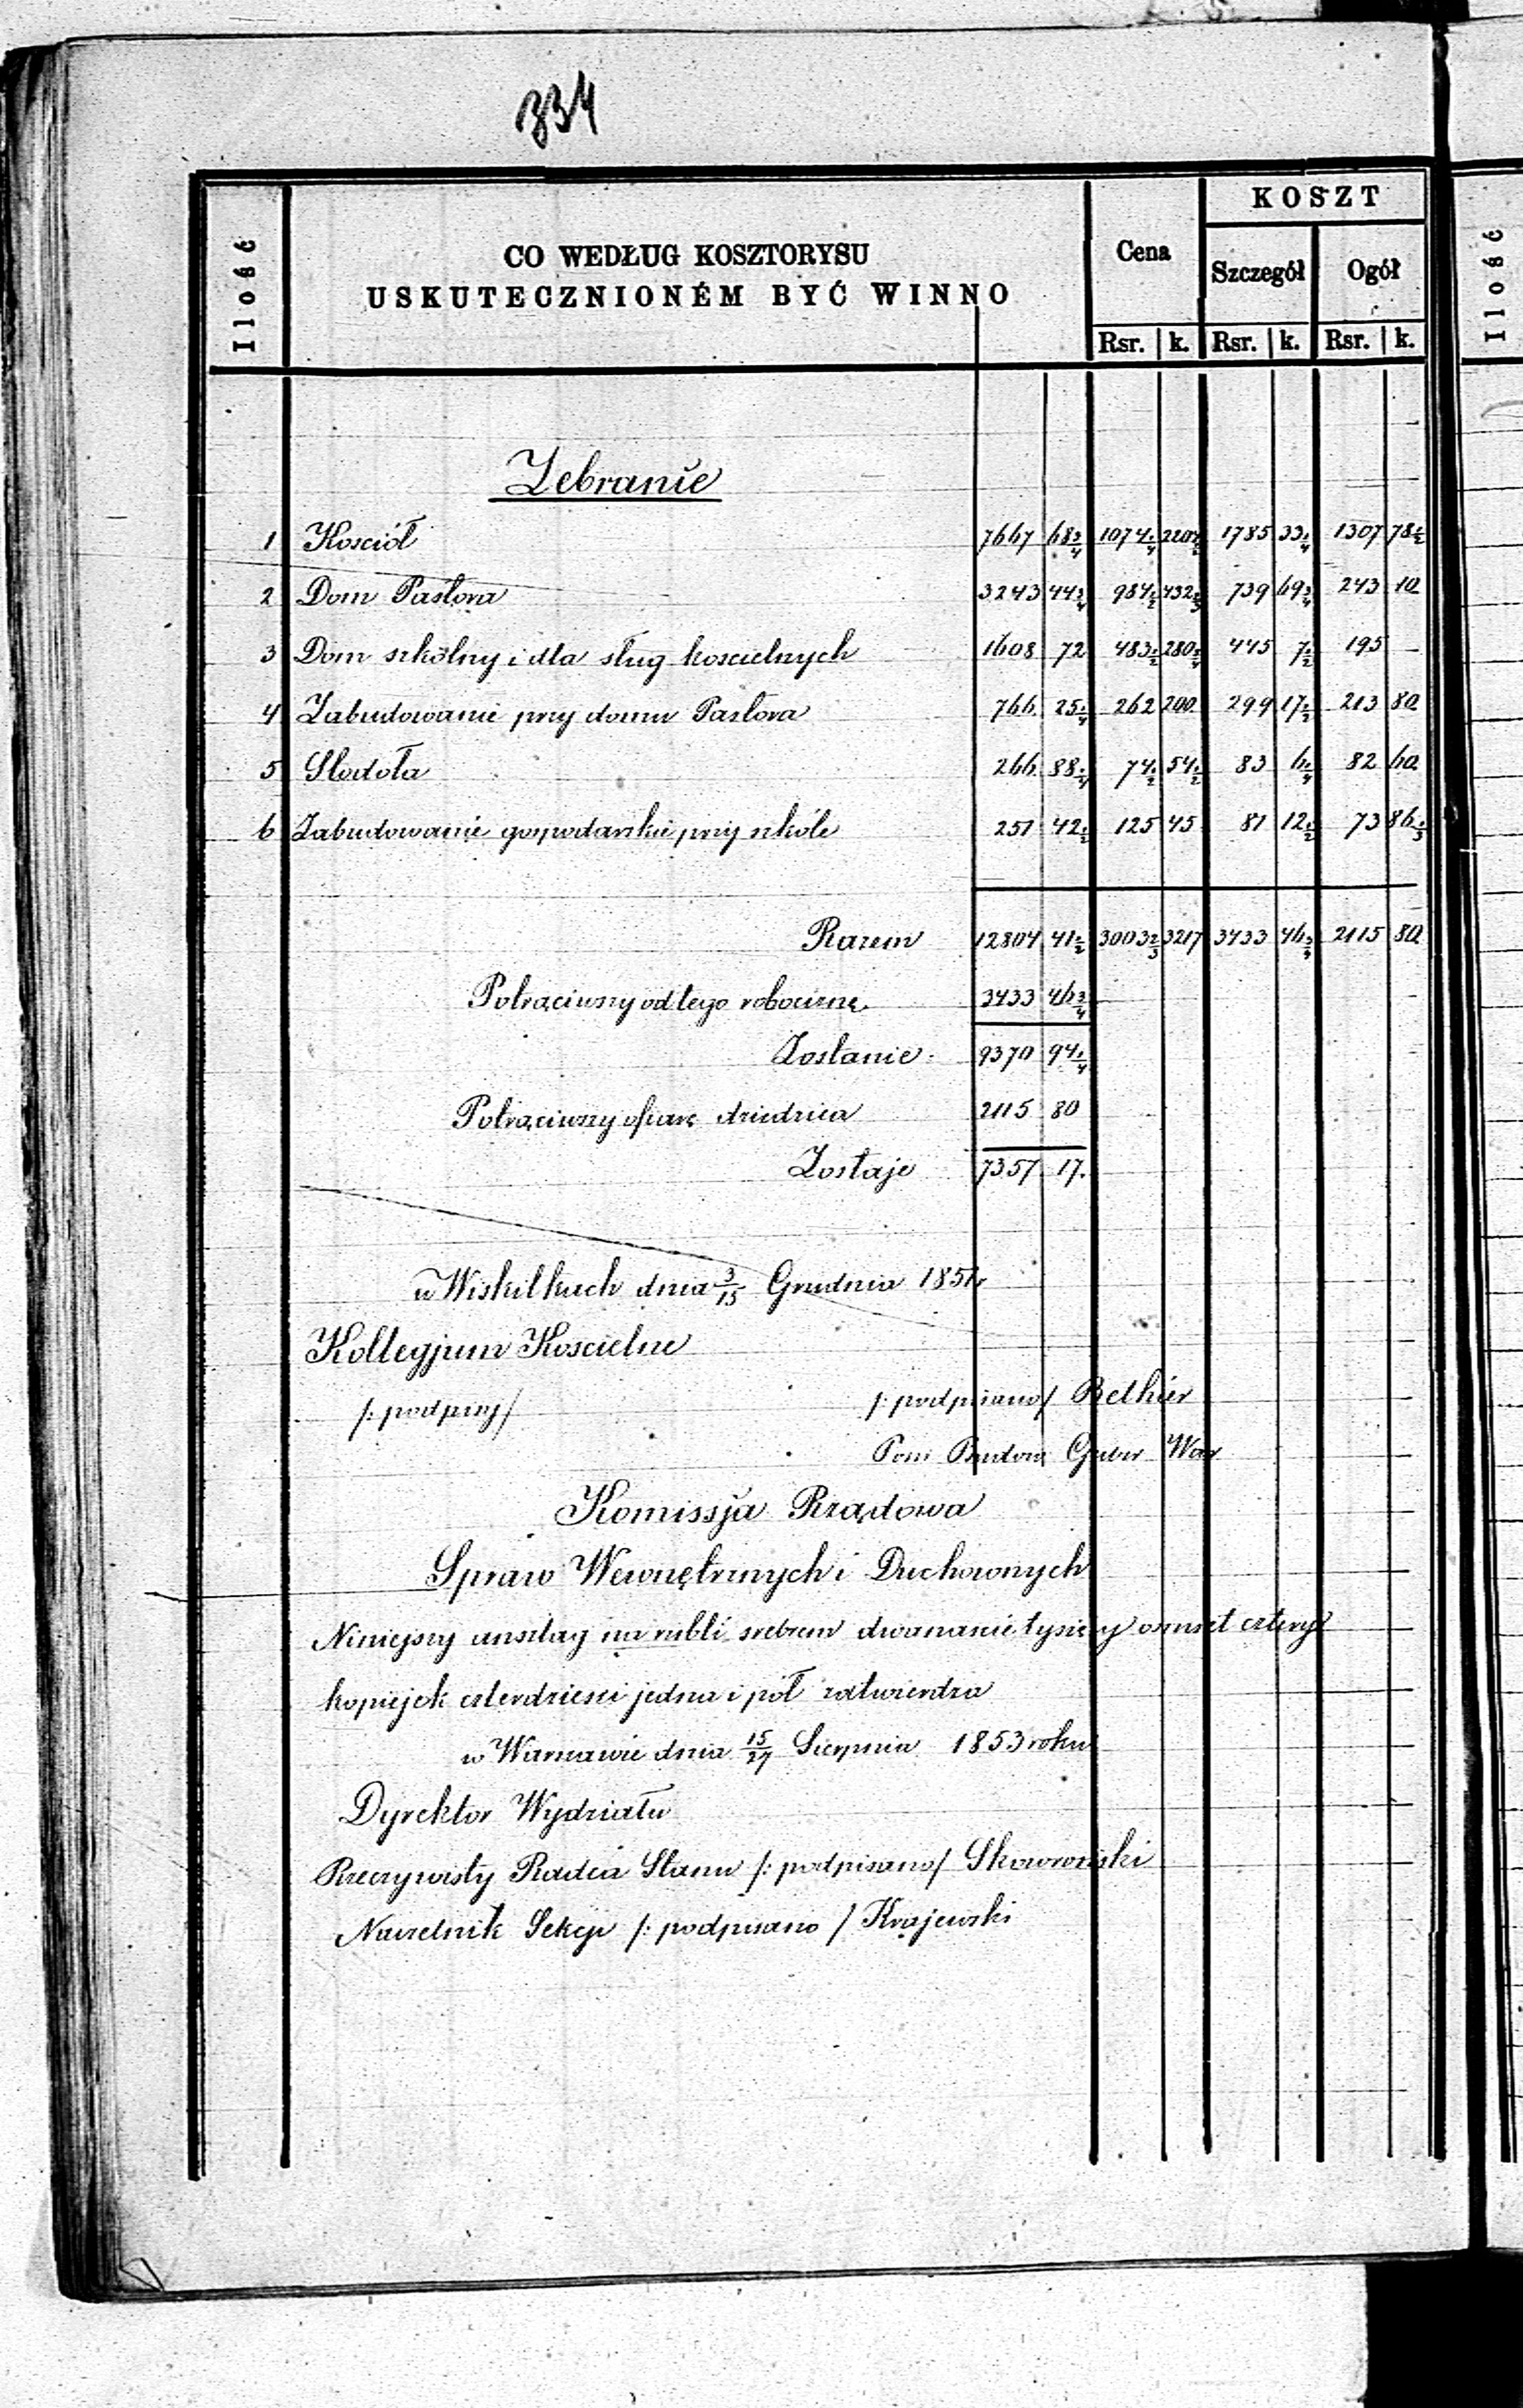 334
Ilość
CO WEDŁUG KOSZTORYSU
USKUTECZNIONÉM BYĆ WINNO
Cena
KOSZT
Szczegół Ogół
Rsr. k. Rsr. k. Rsr. k.
Ilość
Zebranie
1 Kosciół 7667 68 3/4 1074 1/4 1785 33 1/4 1307 78 1/2
2 Dom Pastora 3243 44 3/4 984 1/2 739 69 3/4 243 10
3 Dom szkólny i dla sług koscielnych 1608 72 483 1/2 445 7 1/2 195 —
4 Zabudowanie przy domu Pastora 766 25 1/4 262 200 299 17 1/2 213 80
5 Stodoła 266 88 1/4 74 1/2 54 1/2 83 6 1/4 82 60
6 Zabudowanie gospodarskie przy szkóle 251 42 1/2 125 45 81 12 1/2 73 86 1/3
Razem 12804 41 1/2 3003 2/3 3217 3433 46 3/4 2115 80
Potrąciwszy od tego robociznę 3433 46 3/4
Zostanie 9370 94 1/4
Potrąciwszy ofiarę dziedzica 2115 80
Zostaje 7357 17.
w Wiskitkach dnia 3/15 Grudnia 1851r
Kollegjum Koscielne
/: podpisy/ /: podpisano/ Bethier
Pom Budow Guber War
Komissja Rządowa
Spraw Wewnętrznych i Duchownych
Niniejszy anszlag na rubli srebrem dwanaście tysięcy osmset cztery
kopiejek czterdziesci jedna i pół zatwierdza
w Warszawie dnia 15/27 Sierpnia 1853 roku
Dyrektor Wydziału
Rzeczywisty Radca Stanu /: podpisano/ Skoworoński
Naczelnik Sekcji /: podpisano / Krajewski